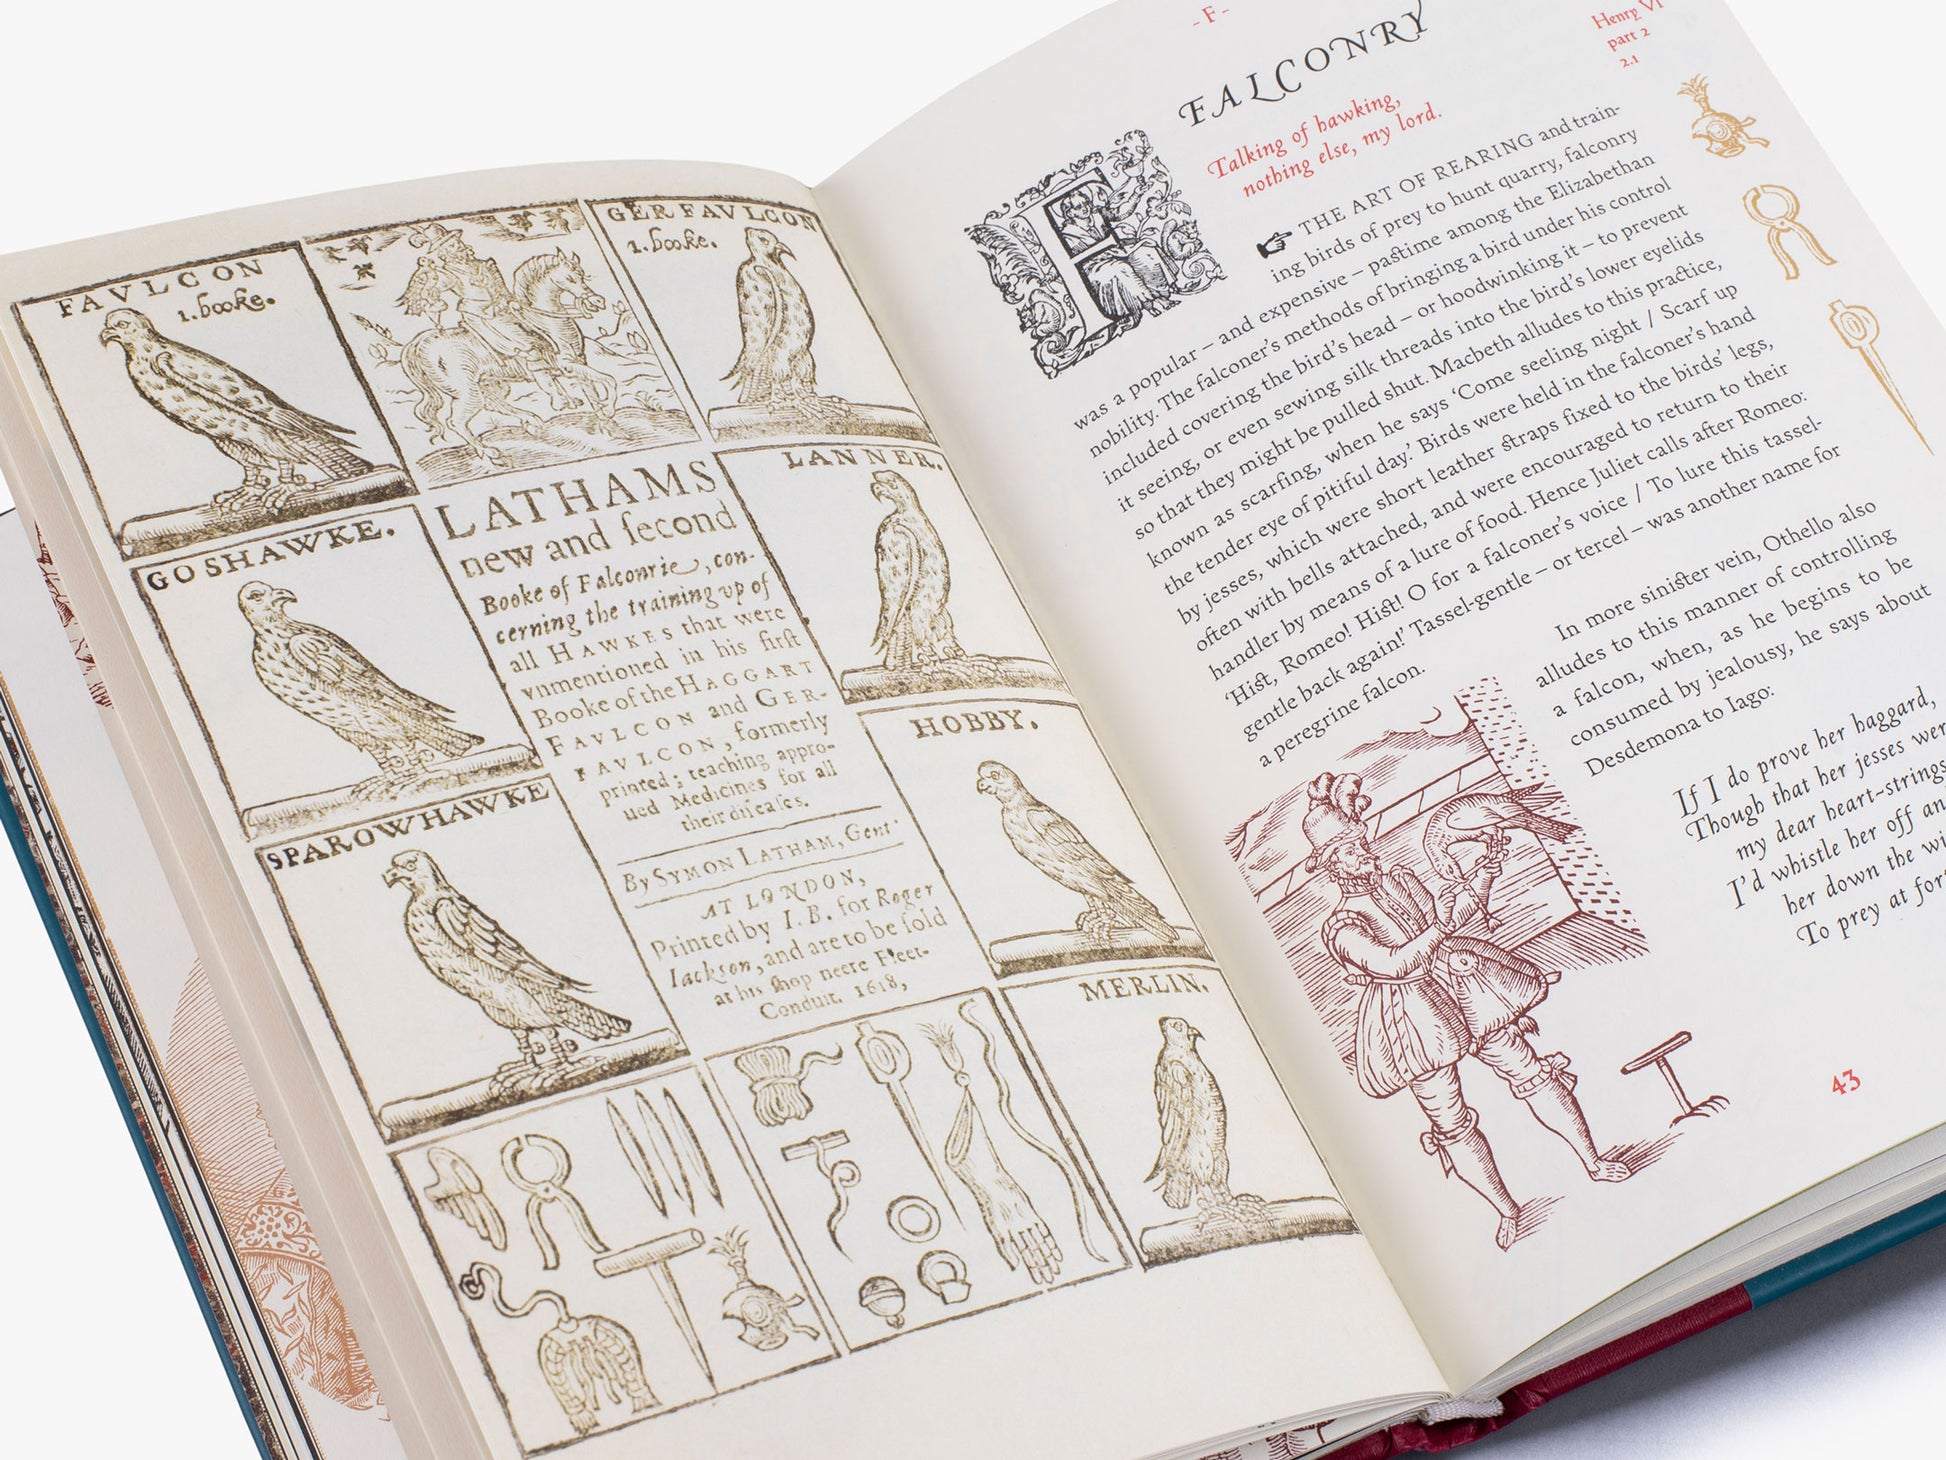 FAVLCON
1. booke.
GER FAVLCON
1. booke.
GOSHAWKE.
LANNER.
SPAROWHAWKE
HOBBY.
MERLIN.
LATHAMS
new and ſecond
Booke of Falconrie, con-
cerning the training vp of
all HAWKES that were
vnmentioned in his firſt
Booke of the HAGGART
FAVLCON and GER-
FAVLCON, formerly
printed; teaching appro-
ued Medicines for all
their diſeaſes.
By SYMON LATHAM, Gent.
AT LONDON,
Printed by I. B. for Roger
Iackson, and are to be ſold
at his ſhop neere Fleet-
Conduit. 1618,
- F -
Henry VI
part 2
2.1
FALCONRY
Talking of hawking,
nothing else, my lord.
F
☞ THE ART OF REARING and train-
ing birds of prey to hunt quarry, falconry
was a popular – and expensive – pastime among the Elizabethan
nobility. The falconer's methods of bringing a bird under his control
included covering the bird's head – or hoodwinking it – to prevent
it seeing, or even sewing silk threads into the bird's lower eyelids
so that they might be pulled shut. Macbeth alludes to this practice,
known as scarfing, when he says 'Come seeling night / Scarf up
the tender eye of pitiful day.' Birds were held in the falconer's hand
by jesses, which were short leather straps fixed to the birds' legs,
often with bells attached, and were encouraged to return to their
handler by means of a lure of food. Hence Juliet calls after Romeo:
'Hist, Romeo! Hist! O for a falconer's voice / To lure this tassel-
gentle back again!' Tassel-gentle – or tercel – was another name for
a peregrine falcon.
In more sinister vein, Othello also
alludes to this manner of controlling
a falcon, when, as he begins to be
consumed by jealousy, he says about
Desdemona to Iago:
If I do prove her haggard,
Though that her jesses wer
my dear heart-strings
I'd whistle her off an
her down the wi
To prey at for
43